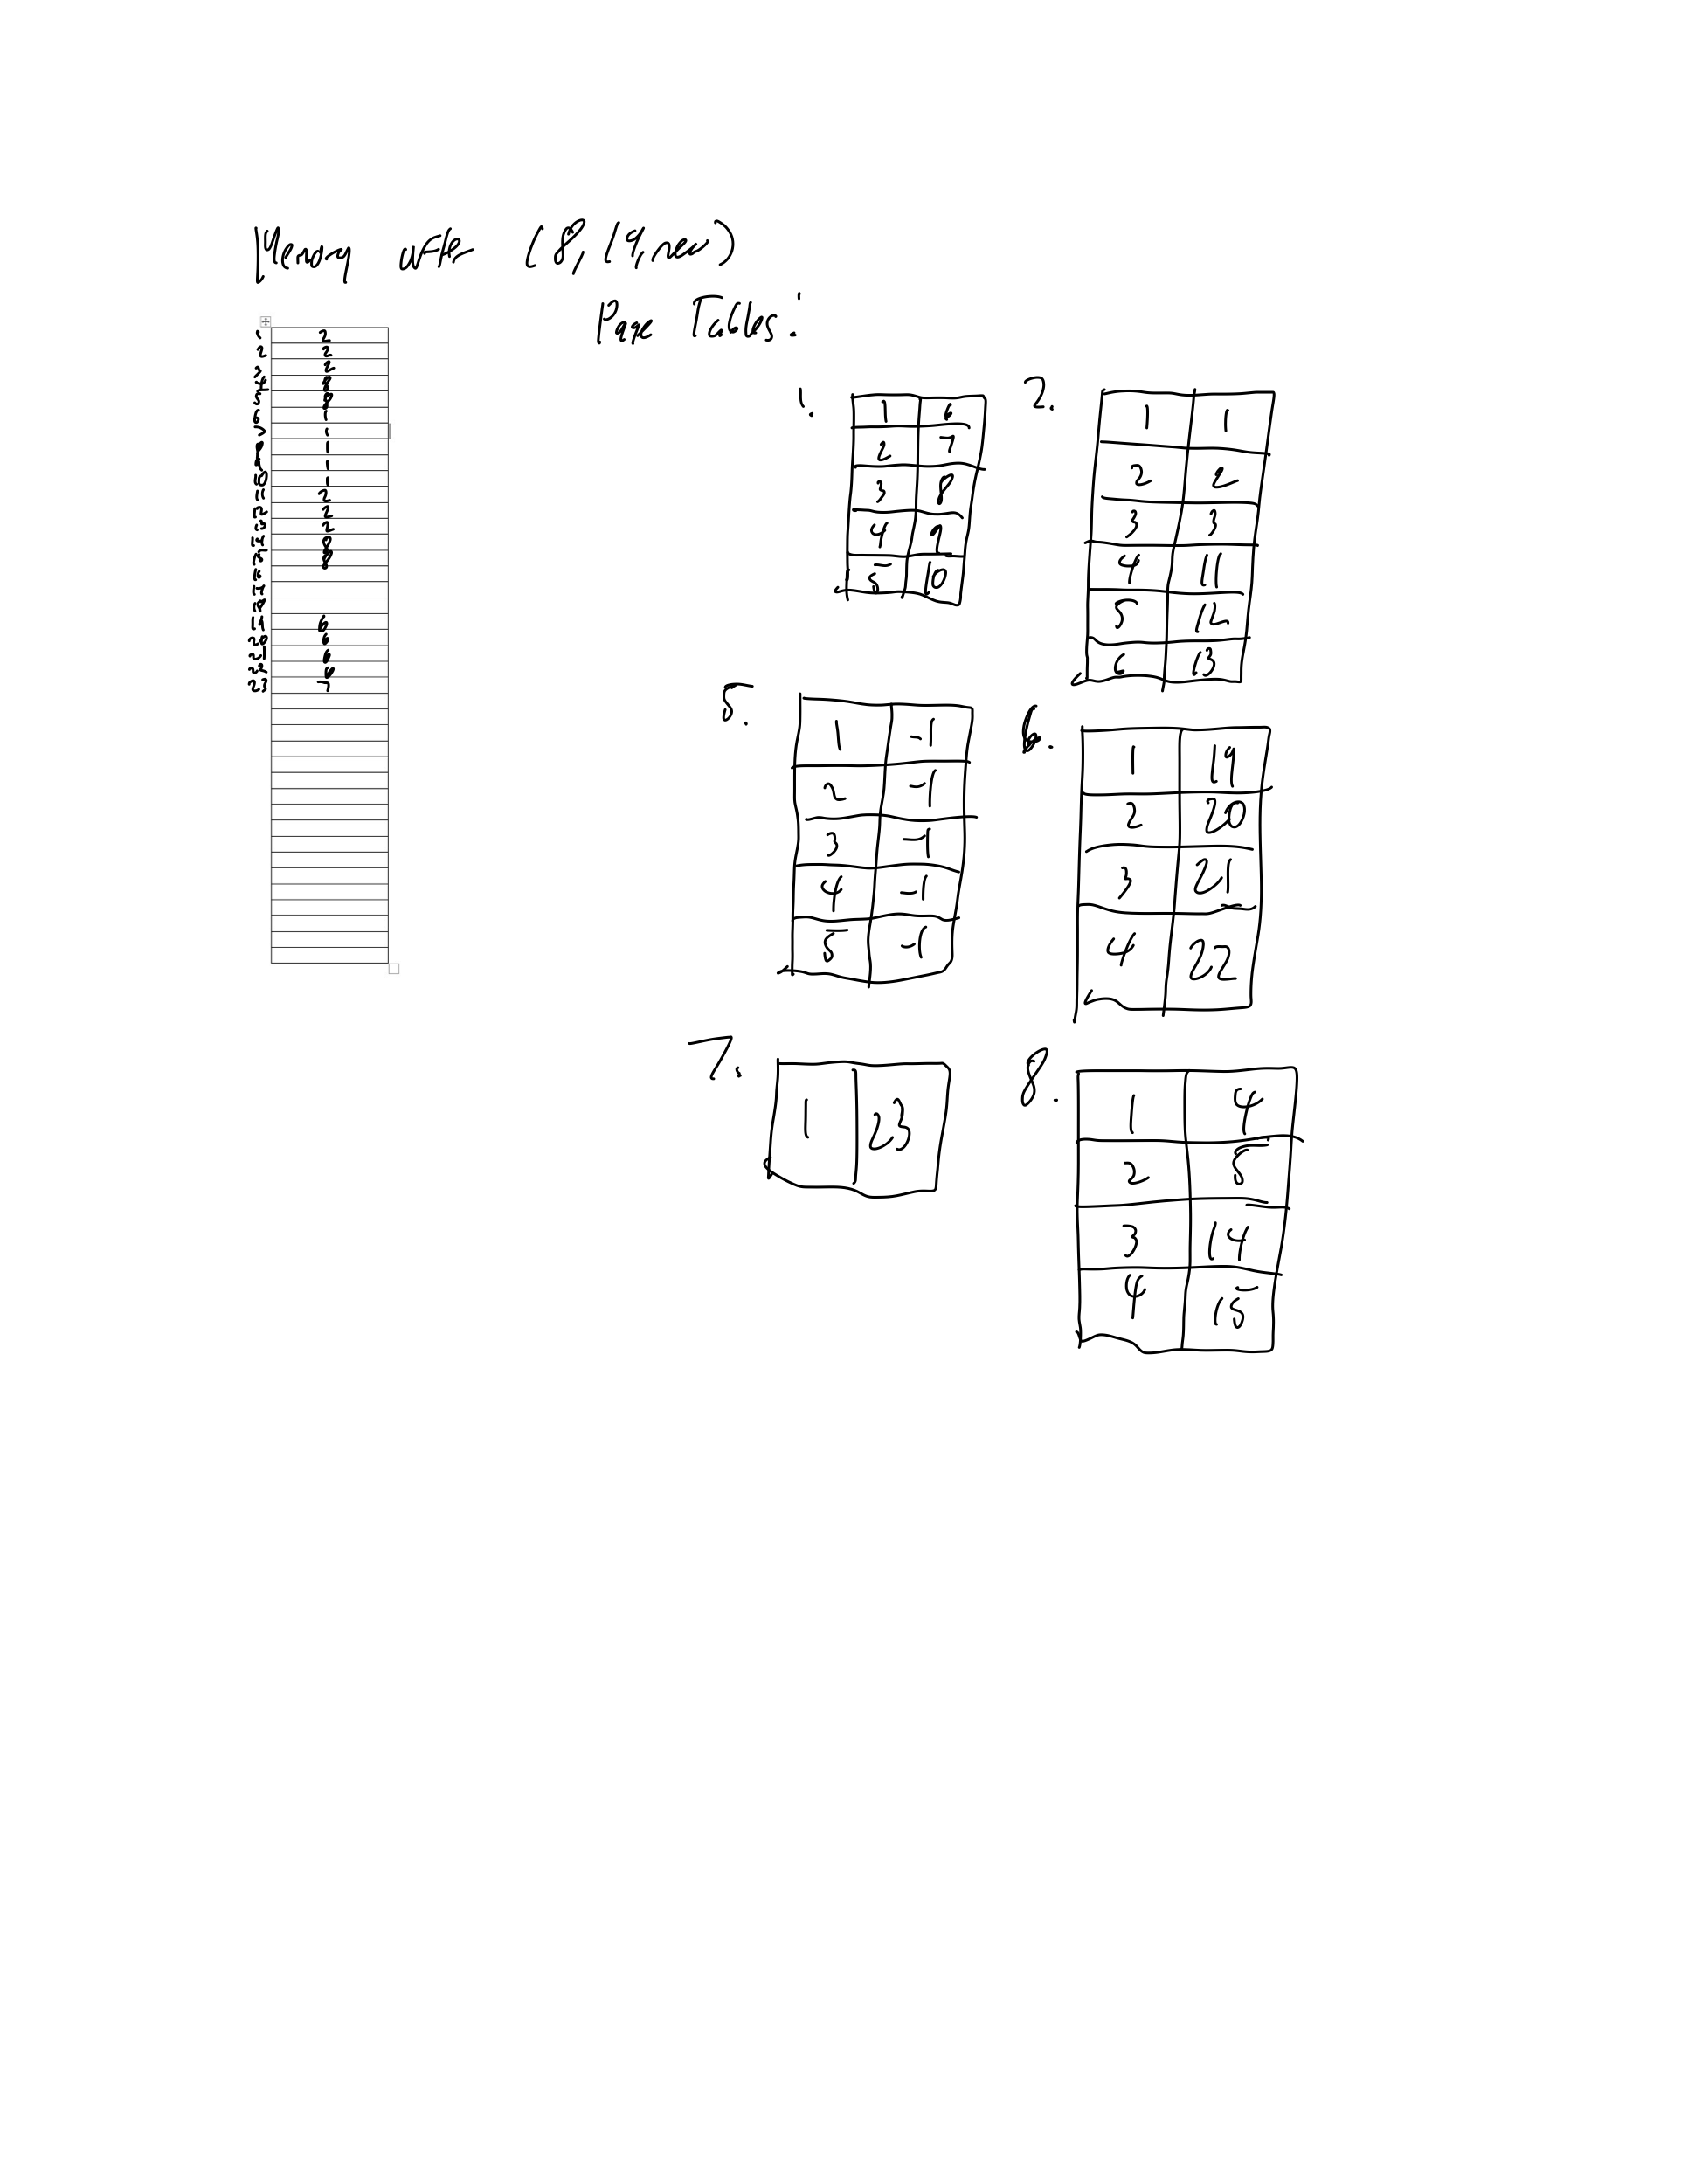 Memory after (8, 14, new)
Page Tables:
1 2
2 2
3 2
4 8
5 8
6 1
7 1
8 1
9 1
10 1
11 2
12 2
13 2
14 8
15 8
16
17
18
19 6
20 6
21 6
22 6
23 7
1.
1 6
2 7
3 8
4 9
5 10
2.
1 1
2 2
3 3
4 11
5 12
6 13
5.
1 -1
2 -1
3 -1
4 -1
5 -1
6.
1 19
2 20
3 21
4 22
7.
1 23
8.
1 4
2 5
3 14
4 15